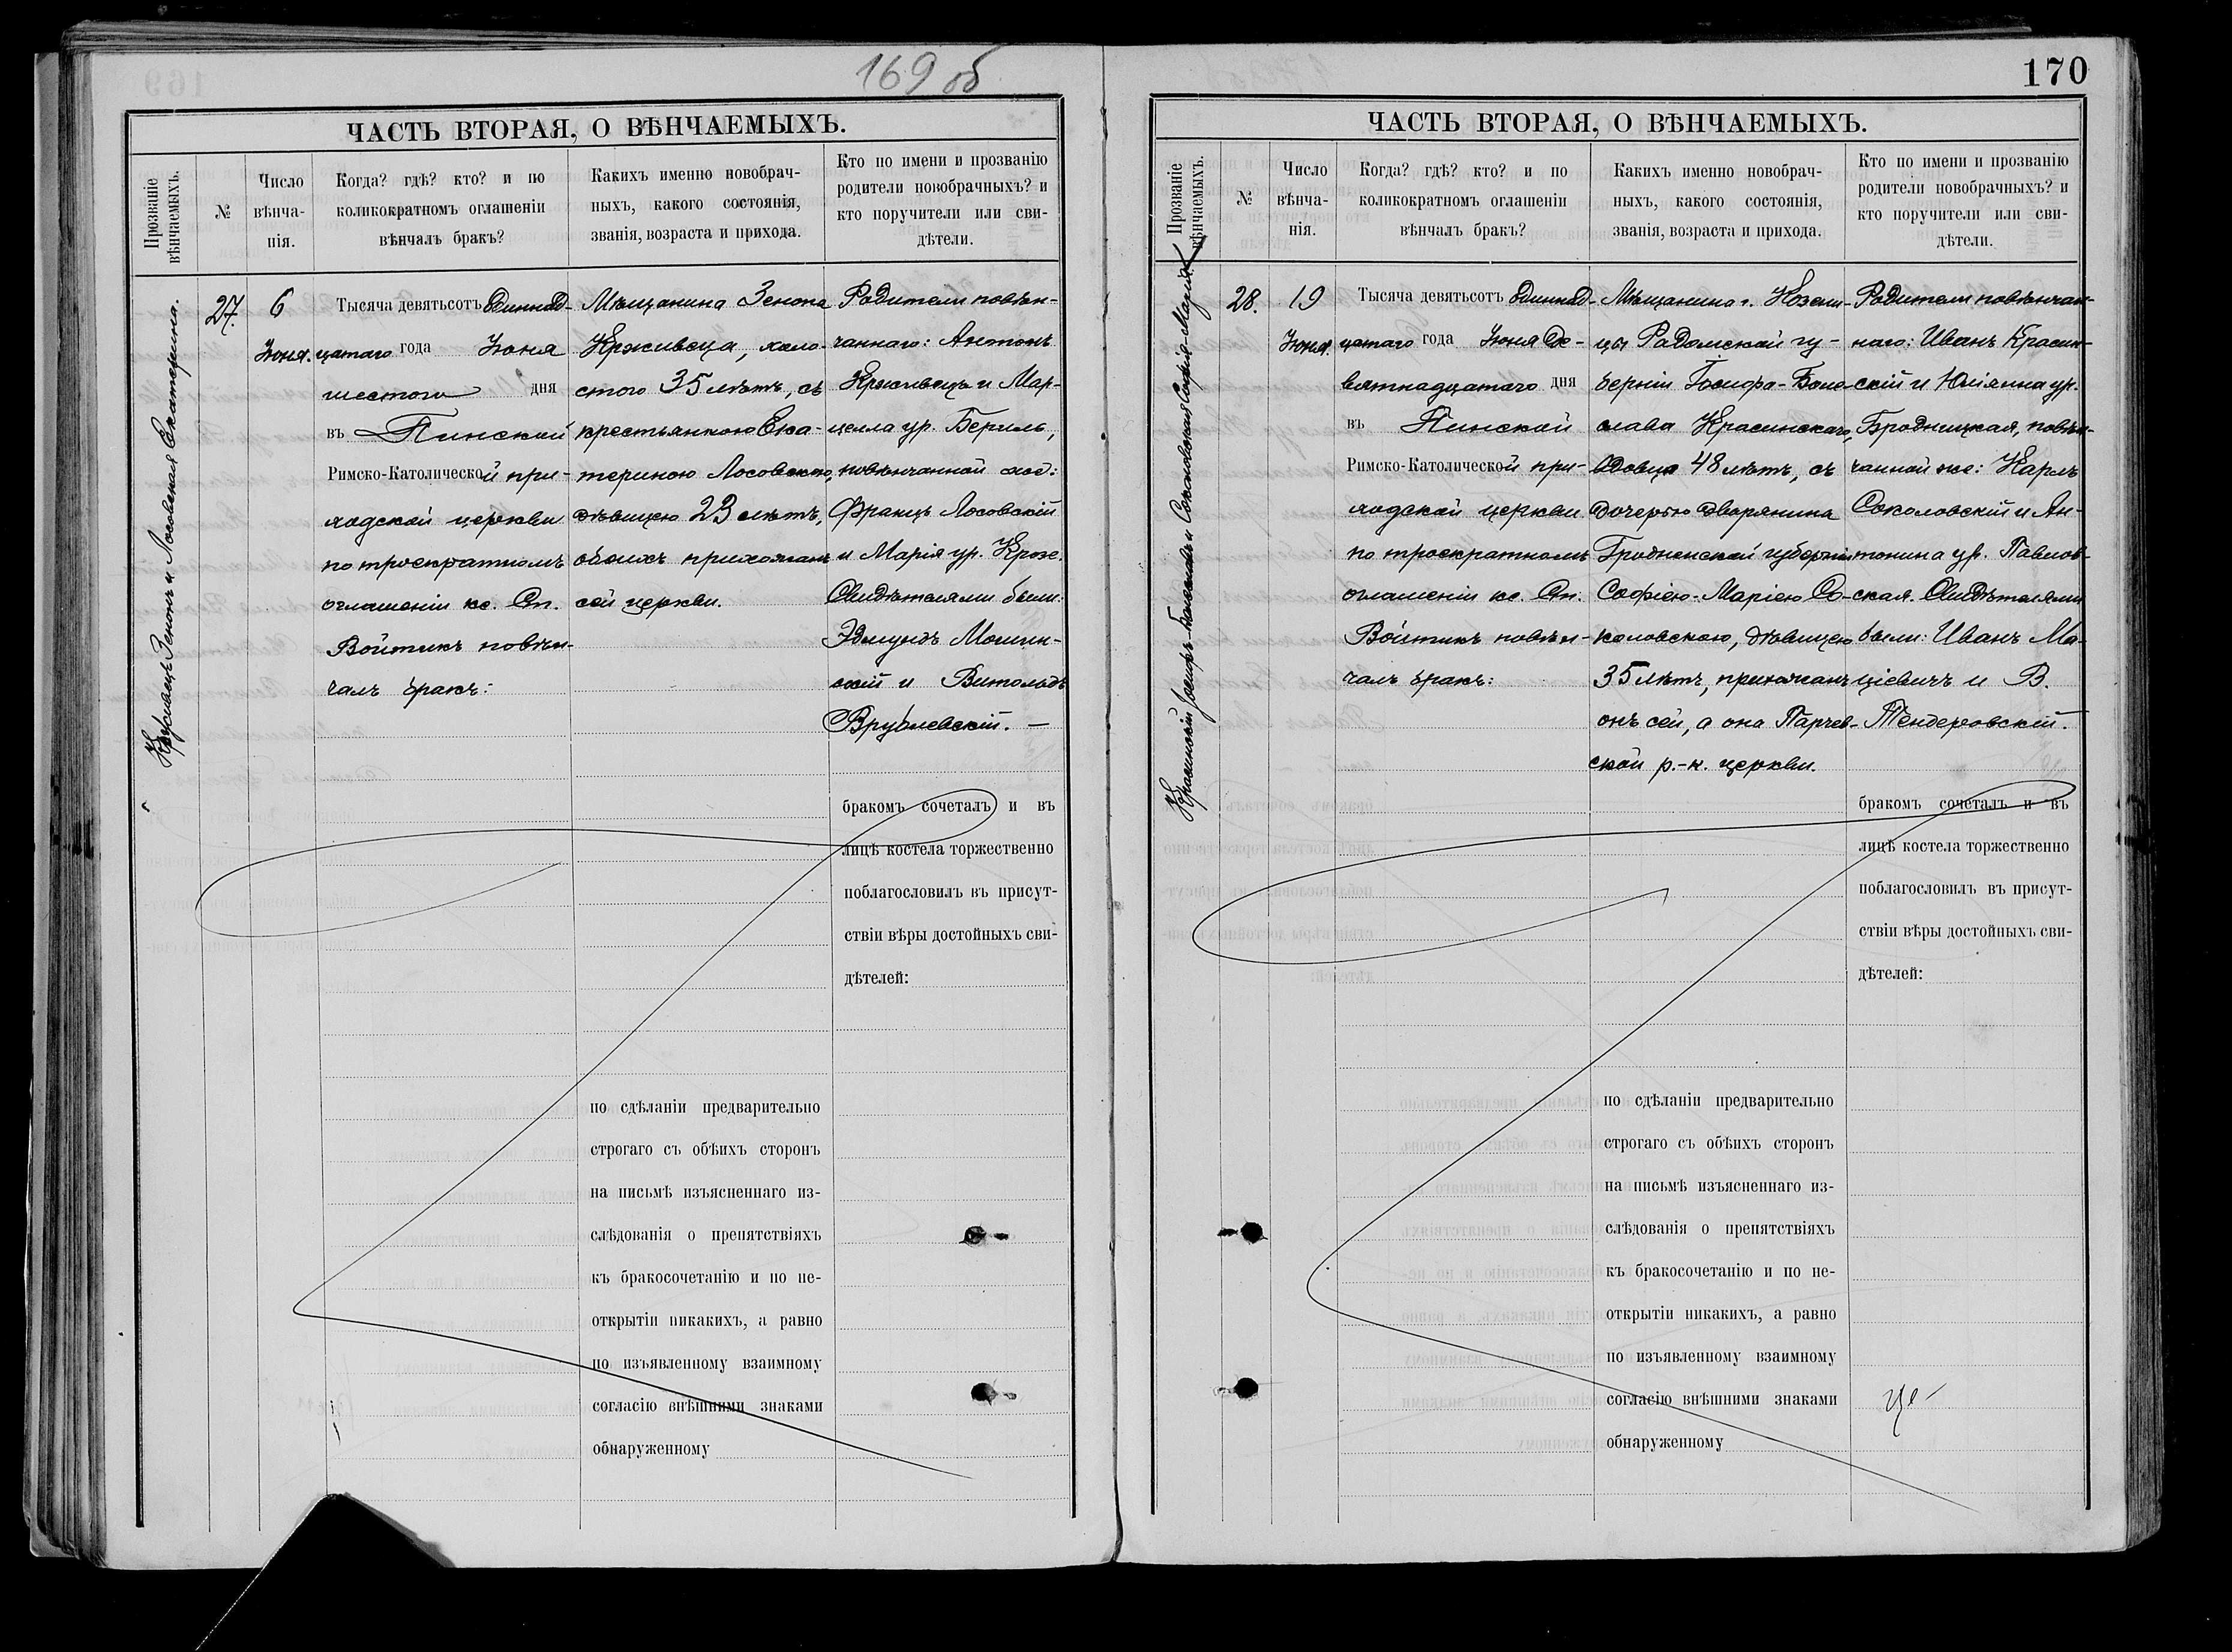 169 об
ЧАСТЬ ВТОРАЯ, О ВѢНЧАЕМЫХЪ.
Прозваніе вѣнчаемыхъ.
№
Число
вѣнча-
нія.
Когда? гдѣ? кто? и по
коликократномъ оглашеніи
вѣнчалъ бракъ?
Какихъ именно новобрач-
ныхъ, какого состоянія,
званія, возраста и прихода.
Кто по имени и прозванію
родители новобрачныхъ? и
кто поручители или сви-
дѣтели.
Крживецъ Зенонъ и Лосовская Екатерина.
27.
6
Іюня.
Тысяча девятьсотъ одиннад-
цатаго года Іюня
шестого дня
въ Пинской
Римско-Католической при-
ходской церкви
по троекратномъ
оглашеніи кс. Ст.
Войтикъ повѣн-
чалъ бракъ:
Мѣщанина Зенона
Крживеца, холо-
стого 35 лѣтъ, съ
крестьянкою Ека-
териною Лосовскою,
дѣвицею 23 лѣтъ,
обоихъ прихожанъ
сей церкви.
Родители повѣн-
чаннаго: Антонъ
Крживецъ и Мар-
целла ур. Бериль,
повѣнчанной же:
Францъ Лосовскій
и Марія ур. Крозе.
Свидѣтелями были:
Эдмундъ Мошин-
скій и Витольдъ
Врублевскій. —
бракомъ сочеталъ и въ
лицѣ костела торжественно
поблагословилъ въ присут-
ствіи вѣры достойныхъ сви-
дѣтелей:
по сдѣланіи предварительно
строгаго съ обѣихъ сторонъ
на письмѣ изъясненнаго из-
слѣдованія о препятствіяхъ
къ бракосочетанію и по не-
открытіи никакихъ, а равно
по изъявленному взаимному
согласію внѣшними знаками
обнаруженному
170
ЧАСТЬ ВТОРАЯ, О ВѢНЧАЕМЫХЪ.
Прозваніе вѣнчаемыхъ.
№
Число
вѣнча-
нія.
Когда? гдѣ? кто? и по
коликократномъ оглашеніи
вѣнчалъ бракъ?
Какихъ именно новобрач-
ныхъ, какого состоянія,
званія, возраста и прихода.
Кто по имени и прозванію
родители новобрачныхъ? и
кто поручители или сви-
дѣтели.
Красинскій Іосифъ-Болеславъ и Соколовская Софія-Марія.
28.
19
Іюня.
Тысяча девятьсотъ одиннад-
цатаго года Іюня де-
вятнадцатаго дня
въ Пинской
Римско-Католической при-
ходской церкви
по троекратномъ
оглашеніи кс. Ст.
Войтикъ повѣн-
чалъ бракъ:
Мѣщанина г. Козени-
цы Радомской гу-
берніи Іосифа-Боле-
слава Красинскаго,
вдовца 48 лѣтъ, съ
дочерью дворянина
Гродненской губерніи
Софіею-Маріею Со-
коловскою, дѣвицею
35 лѣтъ, прихожанъ
онъ сей, а она Парчев-
ской р.-к. церкви.
Родители повѣнчан-
наго: Иванъ Красин-
скій и Юліянна ур.
Бродницкая, повѣн-
чанной же: Карлъ
Соколовскій и Ан-
тонина ур. Павлов-
ская. Свидѣтелями
были: Иванъ Ма-
ціевичъ и В.
Тендеровскій.
бракомъ сочеталъ и въ
лицѣ костела торжественно
поблагословилъ въ присут-
ствіи вѣры достойныхъ сви-
дѣтелей:
по сдѣланіи предварительно
строгаго съ обѣихъ сторонъ
на письмѣ изъясненнаго из-
слѣдованія о препятствіяхъ
къ бракосочетанію и по не-
открытіи никакихъ, а равно
по изъявленному взаимному
согласію внѣшними знаками
обнаруженному